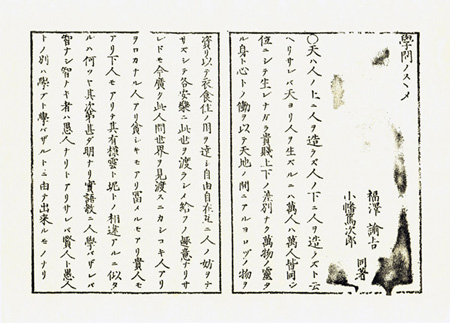 學問ノスヽメ
福澤諭吉
小幡篤次郎 同著
〇天ハ人ノ上ニ人ヲ造ラズ人ノ下ニ人ヲ造ラズト云
ヘリサレバ天ヨリ人ヲ生ズルニハ萬人ハ萬人皆同ジ
位ニシテ生レナガラ貴賤上下ノ差別ナク萬物ノ靈タ
ル身ト心トノ働ヲ以テ天地ノ間ニアルヨロヅノ物ヲ
資リ以テ衣食住ノ用ヲ達シ自由自在互ニ人ノ妨ヲナ
サズシテ各安樂ニ此世ヲ渡ラシメ給フノ趣意ナリサ
レドモ今廣ク此人間世界ヲ見渡スニカシコキ人アリ
ヲロカナル人アリ貧シキモアリ冨メルモアリ貴人モ
アリ下人モアリテ其有樣雲ト坭トノ相違アルニ似タ
ルハ何ゾヤ其次第甚ダ明ナリ實語教ニ人學バザレバ
智ナシ智ナキ者ハ愚人ナリトアリサレバ賢人ト愚人
トノ別ハ學ブト學バザルトニ由テ出來ルモノナリ